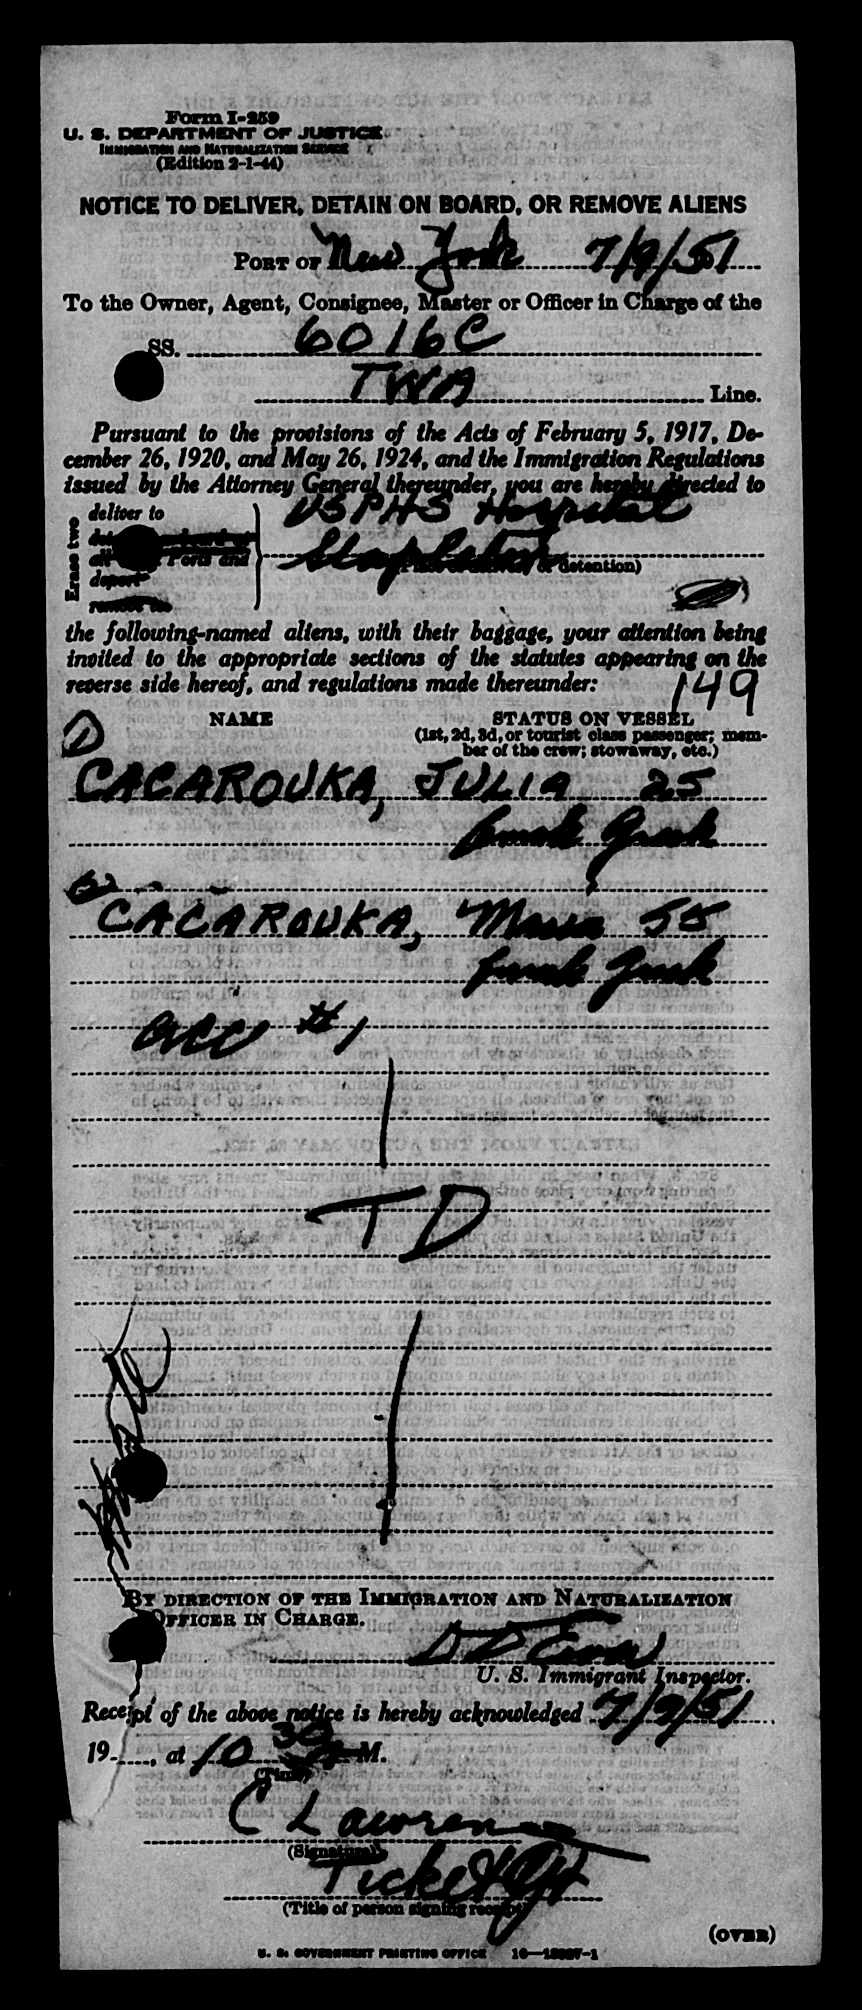 Form I-259
U. S. DEPARTMENT OF JUSTICE
IMMIGRATION AND NATURALIZATION SERVICE
(Edition 2-1-44)
NOTICE TO DELIVER, DETAIN ON BOARD, OR REMOVE ALIENS
PORT OF New York 7/9/51
To the Owner, Agent, Consignee, Master or Officer in Charge of the
SS. 6016C
TWA Line.
Pursuant to the provisions of the Acts of February 5, 1917, De-
cember 26, 1920, and May 26, 1924, and the Immigration Regulations
issued by the Attorney General thereunder, you are hereby directed to
Erase two
deliver to USPHS Hospital
Stapleton
detention)
the following-named aliens, with their baggage, your attention being
invited to the appropriate sections of the statutes appearing on the
reverse side hereof, and regulations made thereunder: 149
NAME STATUS ON VESSEL
(1st, 2d, 3d, or tourist class passenger; mem-
ber of the crew; stowaway, etc.)
CACAROUKA, JULIA 25
female Greek
CACAROUKA, Maria 55
female Greek
acc #1
TD
BY DIRECTION OF THE IMMIGRATION AND NATURALIZATION
OFFICER IN CHARGE.
U. S. Immigrant Inspector.
Receipt of the above notice is hereby acknowledged 7/9/51
19 , at 10 30 M.
(Time)
C Lawrence
(Signature)
Ticket Agt
(Title of person signing receipt)
(OVER)
U. S. GOVERNMENT PRINTING OFFICE